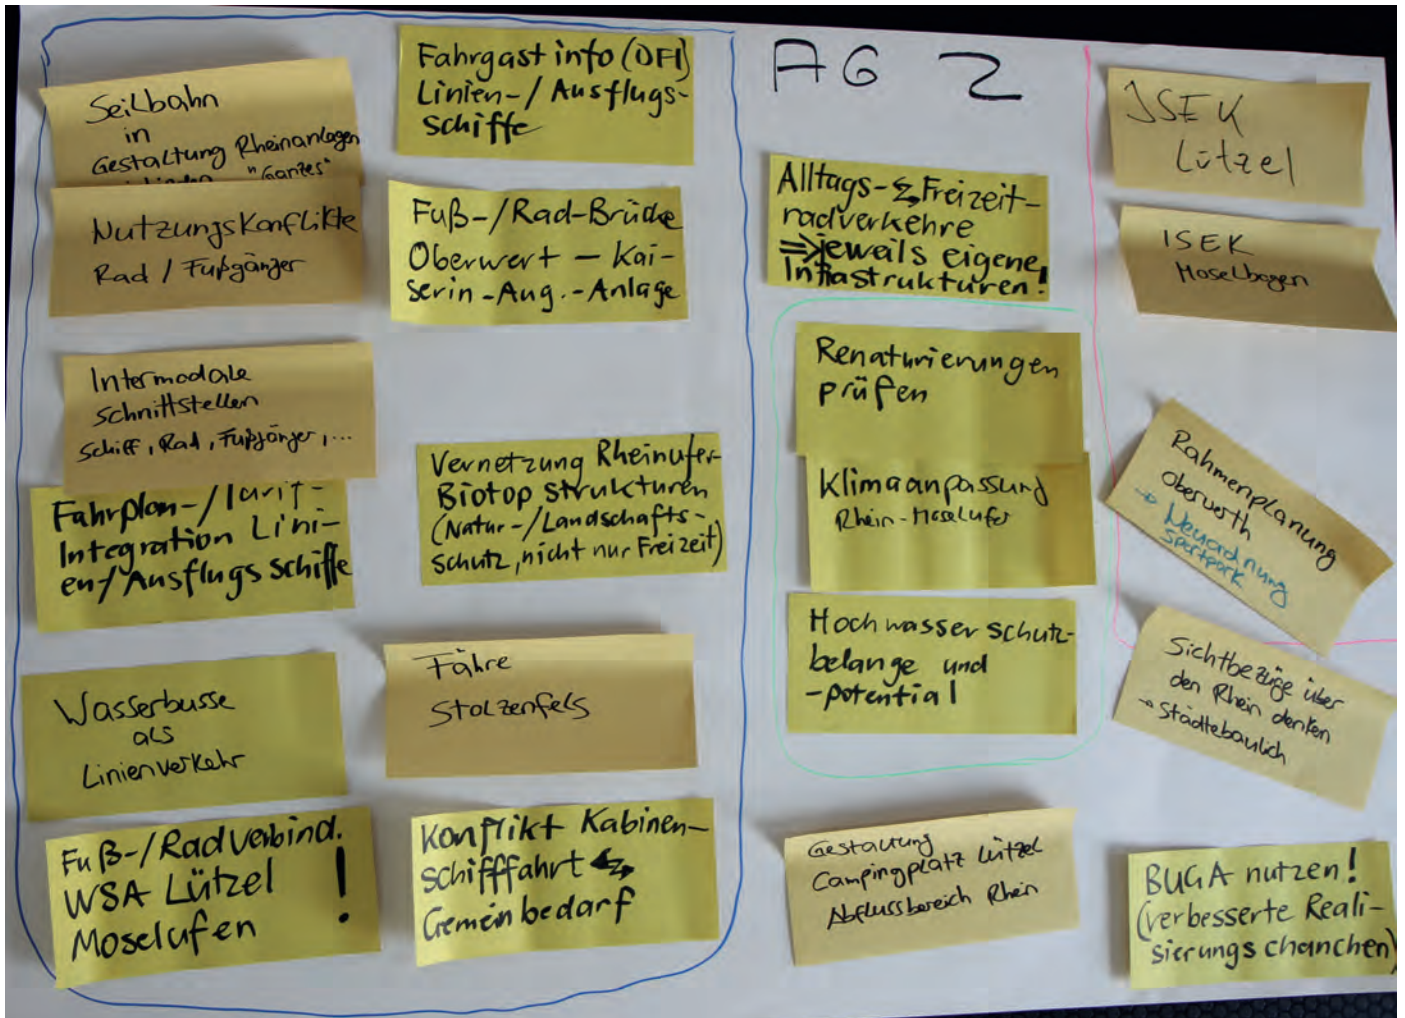 AG 2
Seilbahn
in
Gestaltung Rheinanlagen
"Ganzes"
Nutzungskonflikte
Rad / Fußgänger
Intermodale
Schnittstellen
Schiff, Rad, Fußgänger, ...
Fahrplan-/Tarif-
Integration Lini-
en/Ausflugsschiffe
Wasserbusse
als
Linienverkehr
Fuß-/Radverbind.
WSA Lützel !
Moselufen
Fahrgastinfo (DFI)
Linien-/Ausflugs-
schiffe
Fuß-/Rad-Brücke
Oberwert - Kai-
serin-Aug.-Anlage
Vernetzung Rheinufer-
Biotopstrukturen
(Natur-/Landschafts-
schutz, nicht nur Freizeit)
Fähre
Stolzenfels
Konflikt Kabinen-
schifffahrt ↔
Gemeinbedarf
Alltags- ↔ Freizeit-
radverkehre
⇒ jeweils eigene
Infrastrukturen!
Renaturierungen
prüfen
Klimaanpassung
Rhein-Moselufer
Hochwasserschutz-
belange und
-potential
Gestaltung
Campingplatz Lützel
Abflussbereich Rhein
ISEK
Lützel
ISEK
Moselbogen
Rahmenplanung
Oberwerth
→ Neuordnung
Sportpark
Sichtbezüge über
den Rhein denken
→ Städtebaulich
BUGA nutzen!
(verbesserte Reali-
sierungschanchen)